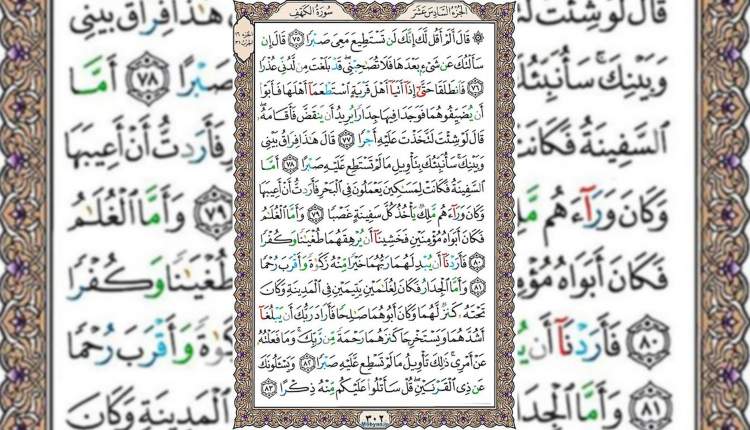 الجزء السادس عشر
سورة الكهف
۞ قَالَ أَلَمْ أَقُل لَّكَ إِنَّكَ لَن تَسْتَطِيعَ مَعِيَ صَبْرًا ٧٥ قَالَ إِن
سَأَلْتُكَ عَن شَىْءٍۭ بَعْدَهَا فَلَا تُصَٰحِبْنِى ۖ قَدْ بَلَغْتَ مِن لَّدُنِّى عُذْرًا
٧٦ فَٱنطَلَقَا حَتَّىٰٓ إِذَآ أَتَيَآ أَهْلَ قَرْيَةٍ ٱسْتَطْعَمَآ أَهْلَهَا فَأَبَوْا۟
أَن يُضَيِّفُوهُمَا فَوَجَدَا فِيهَا جِدَارًا يُرِيدُ أَن يَنقَضَّ فَأَقَامَهُۥ ۖ
قَالَ لَوْ شِئْتَ لَتَّخَذْتَ عَلَيْهِ أَجْرًا ٧٧ قَالَ هَٰذَا فِرَاقُ بَيْنِى
وَبَيْنِكَ ۚ سَأُنَبِّئُكَ بِتَأْوِيلِ مَا لَمْ تَسْتَطِع عَّلَيْهِ صَبْرًا ٧٨ أَمَّا
ٱلسَّفِينَةُ فَكَانَتْ لِمَسَٰكِينَ يَعْمَلُونَ فِى ٱلْبَحْرِ فَأَرَدتُّ أَنْ أَعِيبَهَا
وَكَانَ وَرَآءَهُم مَّلِكٌ يَأْخُذُ كُلَّ سَفِينَةٍ غَصْبًا ٧٩ وَأَمَّا ٱلْغُلَٰمُ
فَكَانَ أَبَوَاهُ مُؤْمِنَيْنِ فَخَشِينَآ أَن يُرْهِقَهُمَا طُغْيَٰنًا وَكُفْرًا
٨٠ فَأَرَدْنَآ أَن يُبْدِلَهُمَا رَبُّهُمَا خَيْرًا مِّنْهُ زَكَوٰةً وَأَقْرَبَ رُحْمًا
٨١ وَأَمَّا ٱلْجِدَارُ فَكَانَ لِغُلَٰمَيْنِ يَتِيمَيْنِ فِى ٱلْمَدِينَةِ وَكَانَ
تَحْتَهُۥ كَنزٌ لَّهُمَا وَكَانَ أَبُوهُمَا صَٰلِحًا فَأَرَادَ رَبُّكَ أَن يَبْلُغَآ
أَشُدَّهُمَا وَيَسْتَخْرِجَا كَنزَهُمَا رَحْمَةً مِّن رَّبِّكَ ۚ وَمَا فَعَلْتُهُۥ
عَنْ أَمْرِى ۚ ذَٰلِكَ تَأْوِيلُ مَا لَمْ تَسْطِع عَّلَيْهِ صَبْرًا ٨٢ وَيَسْـَٔلُونَكَ
عَن ذِى ٱلْقَرْنَيْنِ ۖ قُلْ سَأَتْلُوا۟ عَلَيْكُم مِّنْهُ ذِكْرًا ٨٣
٣٠٢